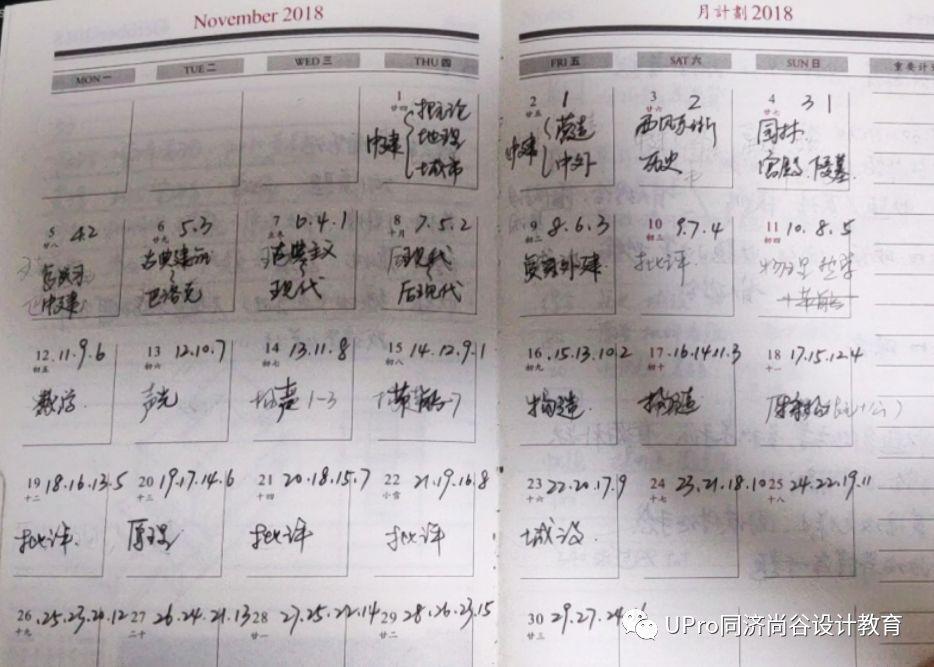 November 2018
月計劃 2018
MON 一
TUE 二
WED 三
THU 四
FRI 五
SAT 六
SUN 日
重要計
1
廿四
中建
地理
城市
2 1
廿五
中建
营造
中外
3 2
廿六
历史
4 3 1
廿七
园林
宫殿、陵墓
5 4.2
廿八
中建
6 5.3
廿九
古典建筑
巴洛克
7 6.4.1
古典主义
现代
8 7.5.2
十月
后现代
9 8.6.3
初二
外建
10 9.7.4
初三
批评
11 10.8.5
初四
物理
12 .11.9.6
初五
数学
13 12.10.7
初六
声光
14 13.11.8
初七
声 1-3
15 14.12.9.1
初八
16 .15.13.10.2
初九
构造
17 .16.14.11.3
初十
构造
18 17.15.12.4
十一
19 18.16.13.5
十二
批评
20 19.17.14.6
十三
原理
21 20.18.15.7
十四
批评
22 21.19.16.8
小雪
批评
23 22.20.17.9
十六
城设
24 23.21.18.10
十七
25 24.22.19.11
十八
26 .25.23.20.12
十九
27 26.24.21.13
二十
28 27.25.22.14
廿一
29 28.26.23.15
廿二
30 29.27.24
廿三
UPro同济尚谷设计教育